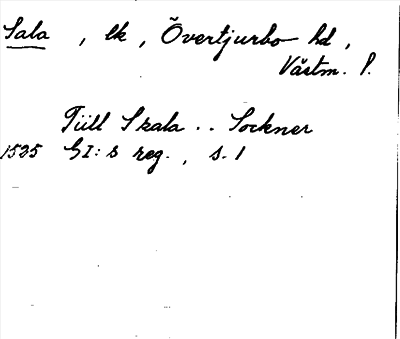 Sala, lk, Övertjurbo hd,
Västm. l.
Tiill Skala .. Sockner
1535 GI:s reg., s. 1